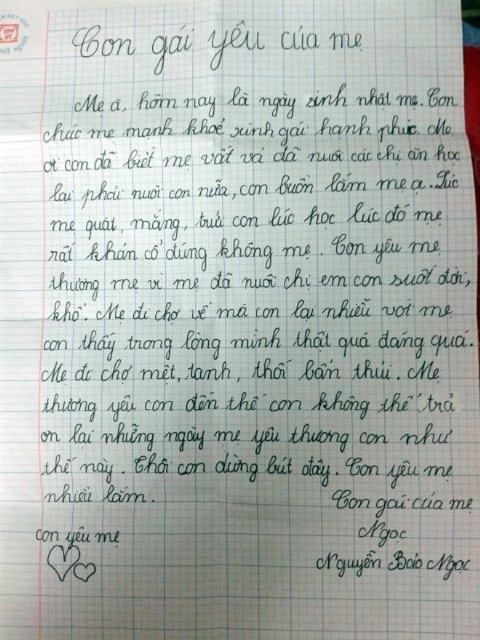 Con gái yêu của mẹ
Mẹ à, hôm nay là ngày sinh nhật mẹ. Con
chúc mẹ mạnh khoẻ xinh gái hạnh phúc. Mẹ
ơi con đã biết mẹ vất vả đã nuôi các chị ăn học
lại phải nuôi con nữa, con buồn lắm mẹ ạ. Lúc
mẹ quát, mắng, con lúc học lúc đó mẹ
rất khản cổ đúng không mẹ. Con yêu mẹ
thương mẹ vì mẹ đã nuôi chị em con suốt đời,
khổ. Mẹ đi chợ về mà con lại nhiễu với mẹ
con thấy trong lòng mình thật quá đáng quá.
Mẹ đi chợ mệt, tanh, thối bẩn thỉu. Mẹ
thương yêu con đến thế con không thể trả
ơn lại những ngày mẹ yêu thương con như
thế này. Thôi con dừng bút ở đây. Con yêu mẹ
nhiều lắm.
Con gái của mẹ
Ngọc
Nguyễn Bảo Ngọc
con yêu mẹ